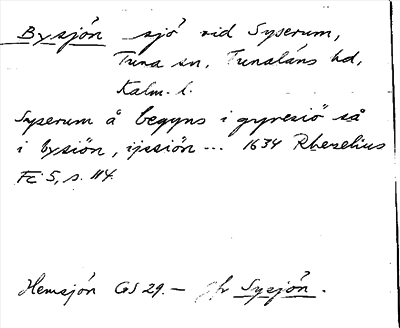 Bysjön sjö vid Syserum,
Tuna sn, Tunaläns hd,
Kalm. l.
Syserum å begyns i gyresiö så
i bysiön, ijssiön ... 1634 Rhezelius
Fc 5, s. 114.
Hemsjön GS 29. — Jfr Sysjön.